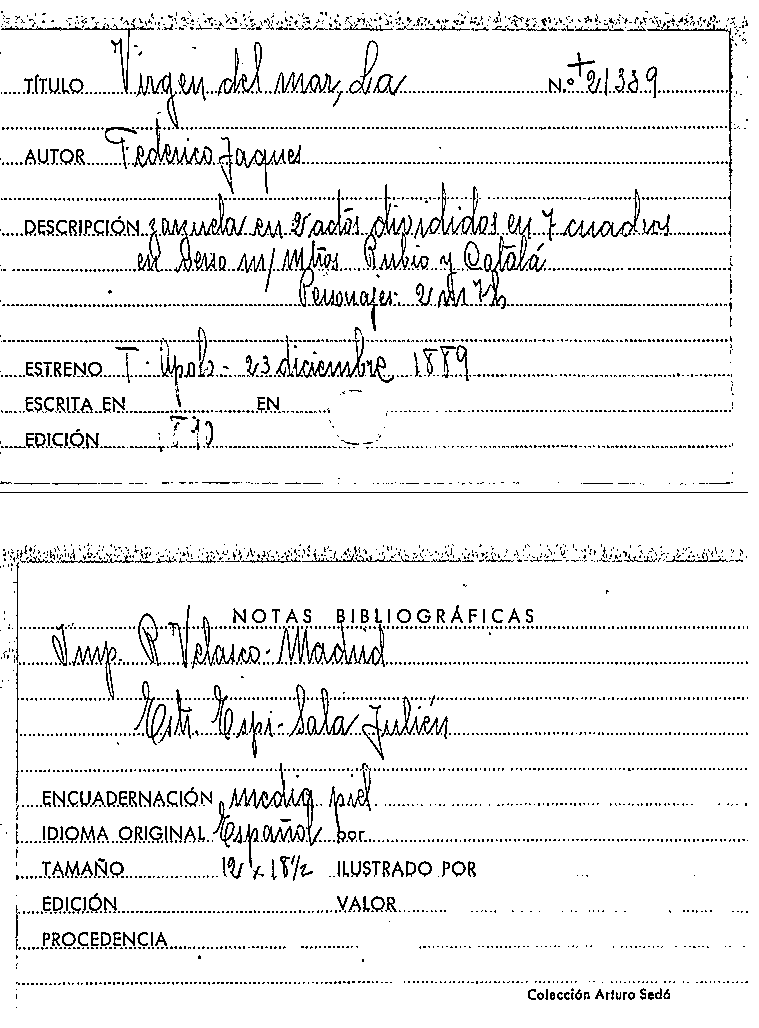 TÍTULO Virgen del mar, La N.º + 21339
AUTOR Federico Jaques
DESCRIPCIÓN zarzuela en 2 actos divididos en 7 cuadros
en verso m/ mtros Rubio y Catalá
Personajes: 2 m 7 h
ESTRENO T. Apolo - 23 diciembre 1889
ESCRITA EN EN
EDICIÓN 1890
NOTAS BIBLIOGRÁFICAS
Imp. R Velasco - Madrid
Estr. Espi - Sala Julién
ENCUADERNACIÓN media piel
IDIOMA ORIGINAL Español por
TAMAÑO 12 x 18½ ILUSTRADO POR
EDICIÓN VALOR
PROCEDENCIA
Colección Arturo Sedó